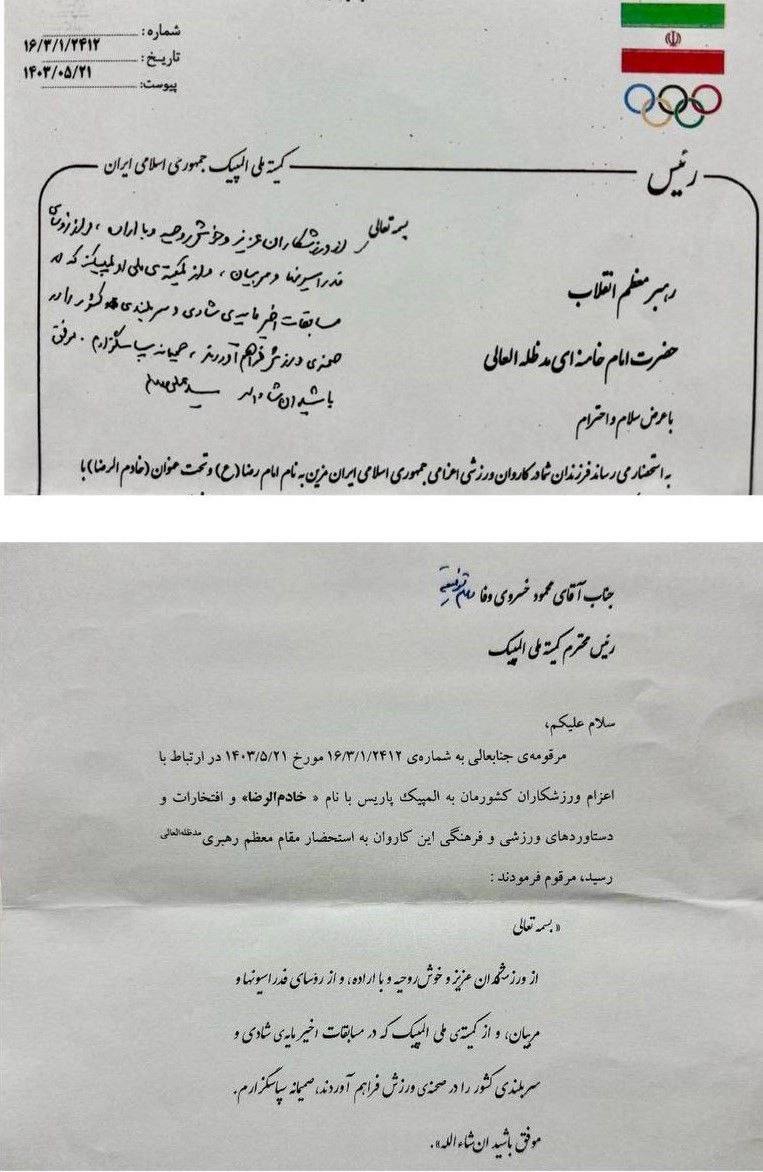 شماره:
۱۶/۳/۱/۲۴۱۲
تاریخ:
۱۴۰۳/۰۵/۲۱
پیوست:
رئیس
کمیته ملی المپیک جمهوری اسلامی ایران
رهبر معظم انقلاب
حضرت امام خامنه ای مدظله العالی
با عرض سلام و احترام
بسمه تعالی
از ورزشکاران عزیز و خوش روحیه و با اراده، و از رؤسای
فدراسیونها و مربیان، و از کمیته‌ی ملی المپیک که در
مسابقات اخیر مایه‌ی شادی و سربلندی کشور را در
صحنه‌ی ورزش فراهم آوردند، صمیمانه سپاسگزارم. موفق
باشید ان شاءالله
به استحضار می رساند فرزندان شما در کاروان ورزشی اعزامی جمهوری اسلامی ایران مزین به نام امام رضا (ع) و تحت عنوان (خادم الرضا) با
جناب آقای محمود خسروی وفا
رئیس محترم کمیته ملی المپیک
سلام علیکم،
مرقومه‌ی جنابعالی به شماره‌ی ۱۶/۳/۱/۲۴۱۲ مورخ ۱۴۰۳/۵/۲۱ در ارتباط با
اعزام ورزشکاران کشورمان به المپیک پاریس با نام « خادم‌الرضا» و افتخارات و
دستاوردهای ورزشی و فرهنگی این کاروان به استحضار مقام معظم رهبری مدظله‌العالی
رسید، مرقوم فرمودند :
« بسمه تعالی
از ورزشکاران عزیز و خوش روحیه و با اراده، و از رؤسای فدراسیونها و
مربیان، و از کمیته‌ی ملی المپیک که در مسابقات اخیر مایه‌ی شادی و
سربلندی کشور را در صحنه‌ی ورزش فراهم آوردند، صمیمانه سپاسگزارم.
موفق باشید ان شاءالله».